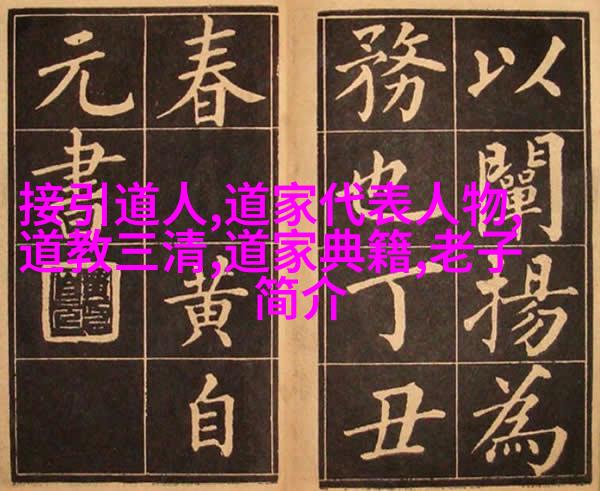 以闡揚為
務也丁丑
春黃自
元書
接引道人,道家代表人物,
道教三清,道家典籍,老子
简介